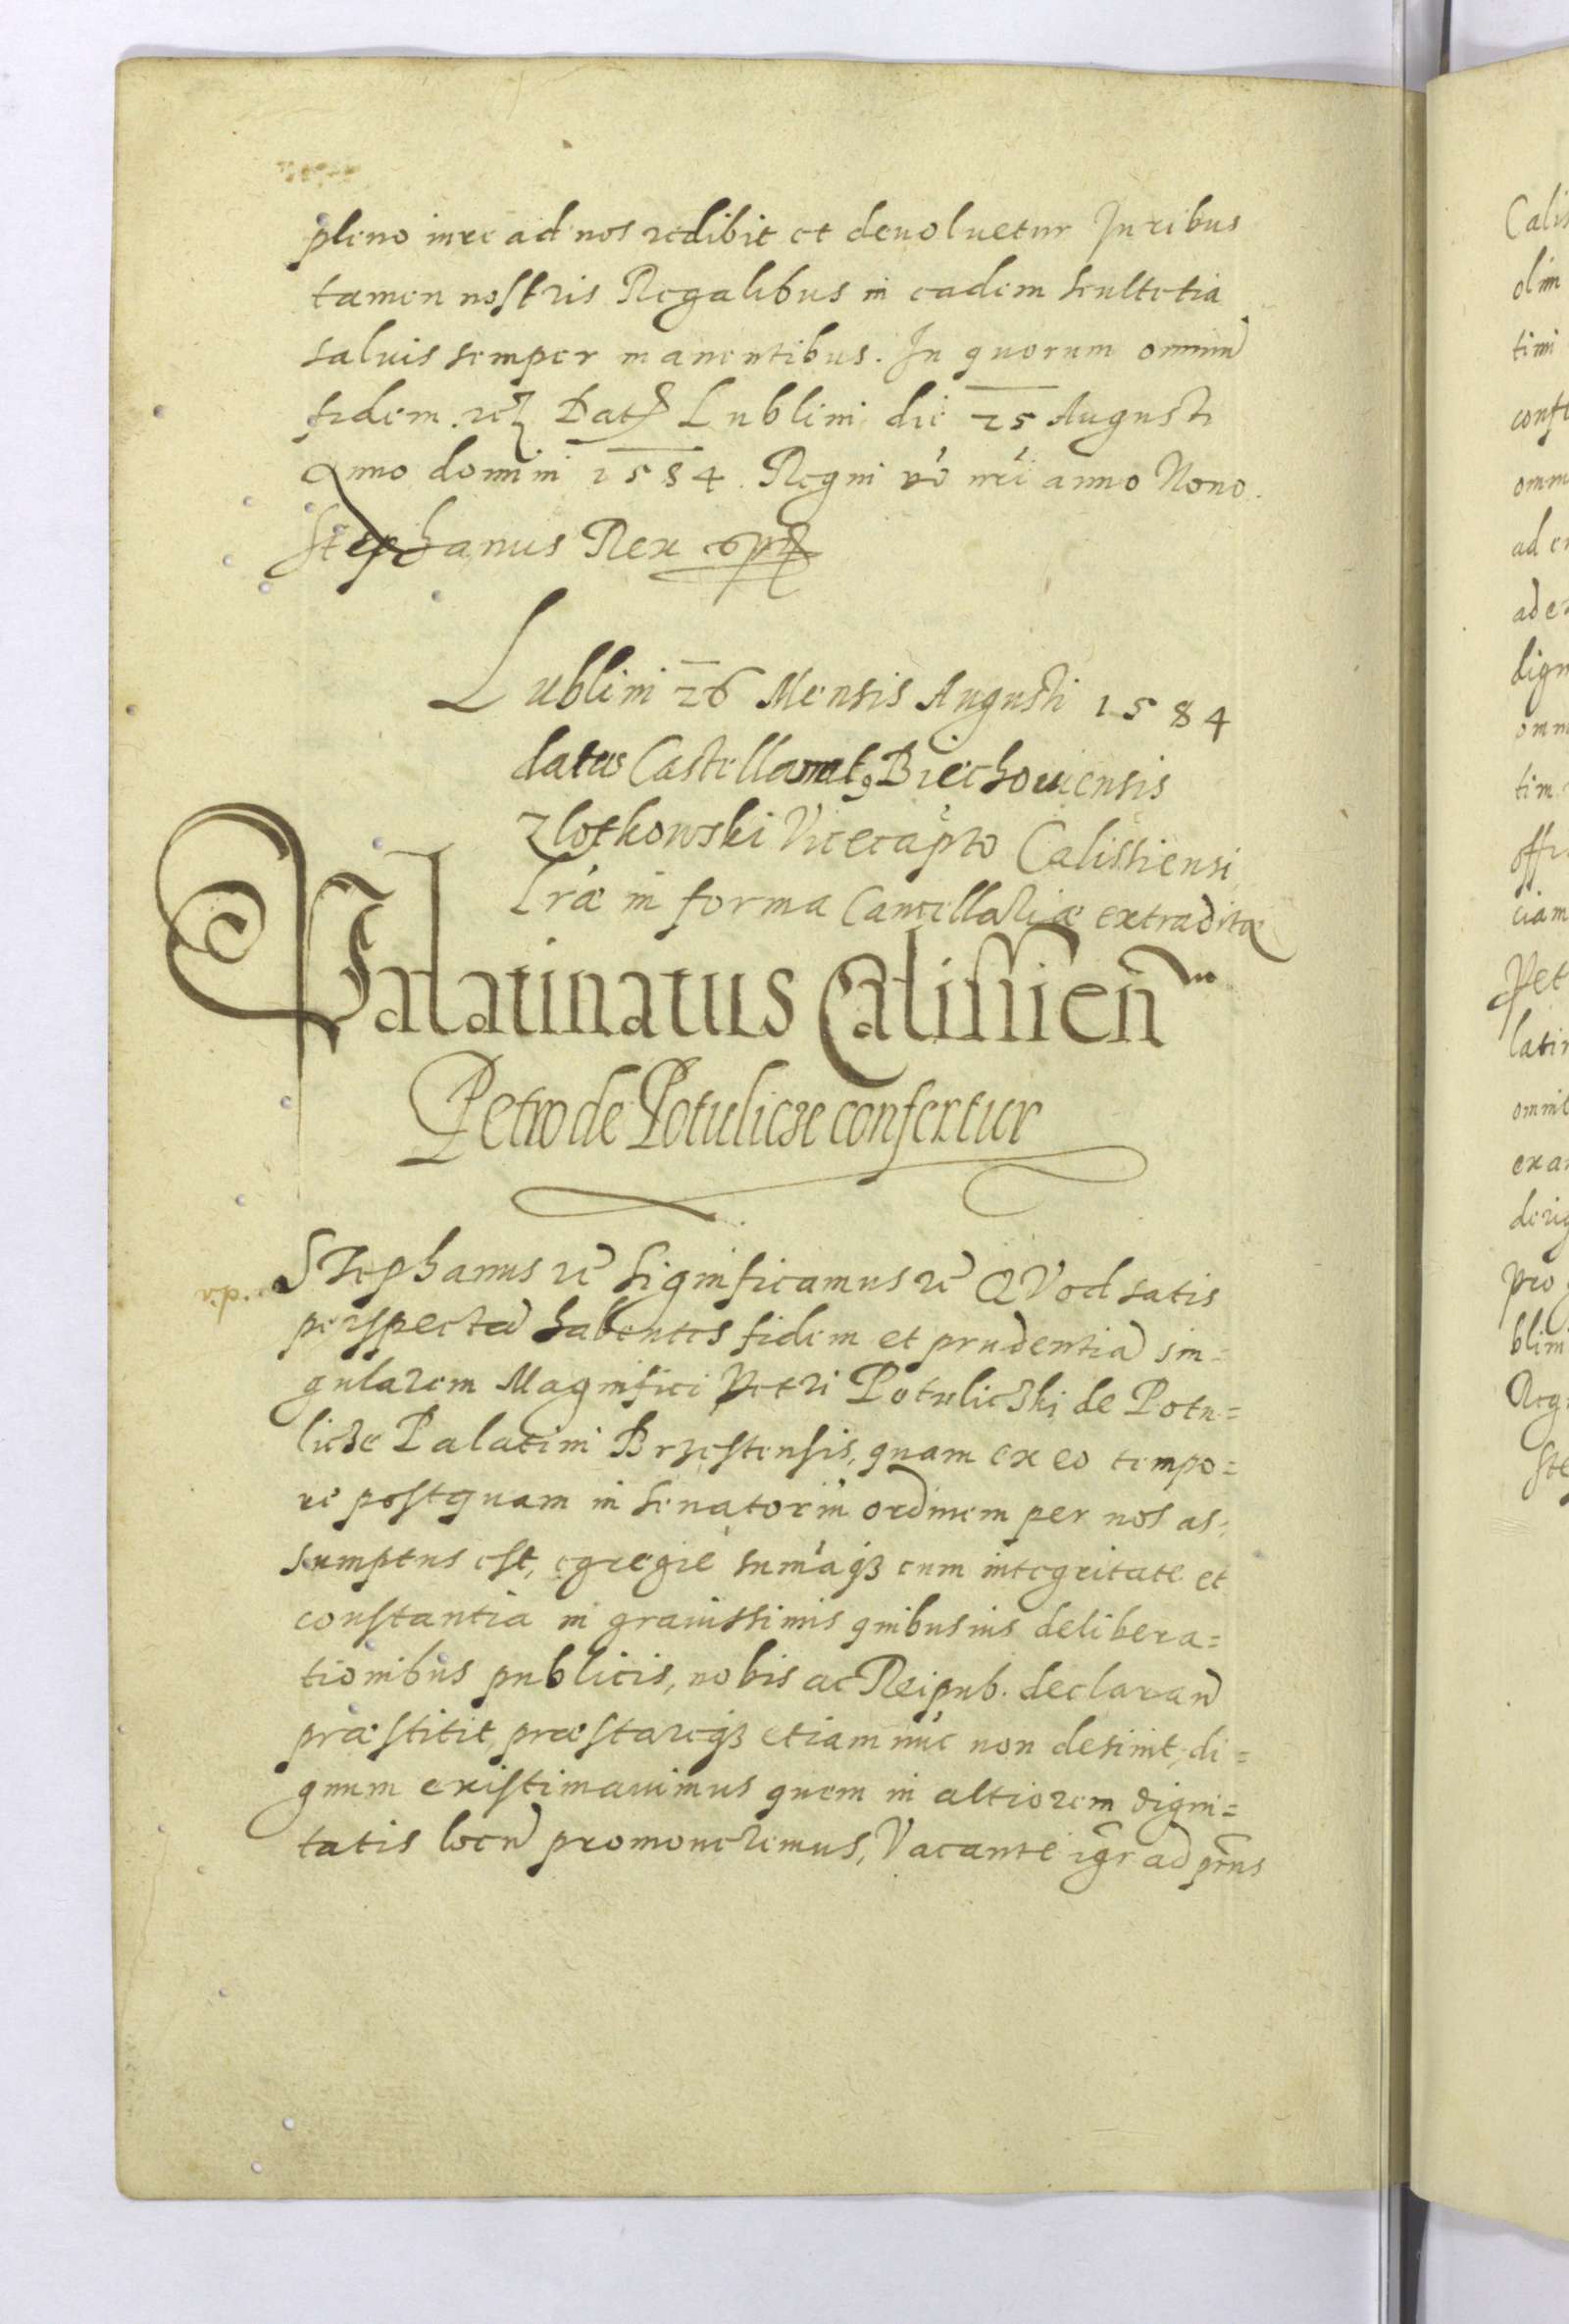 pleno iure ad nos redibit et deuoluetur Juribus
tamen nostris Regalibus in eadem scultetia
saluis semper manentibus. In quorum omniũ
fidem. Dat Lublini die 25 Augusti
Anno domini 1584. Regni vò nrí anno Nono.
Stephanus Rex
Lublini 26 Mensis Augusti 1584
datus Castellanatus Biechouiensis
Zlotkowski Vicecapto Calissiensi
Lrae in forma Cancellariæ extraditæ
Palatinatus Calissień
Petro de Potulicze confertur
Stephanus rẽ Significamus rẽ QVod satis
perspectã habentes fidem et prudentiã sin=
gularem Magnifici Petri Potuliczki de Potu=
licze Palatini Brzestensis, quam ex eo tempo=
re postquam in senatoriũ ordinem per nos as=
sumptus est, egregie sum̃aq3 cum integritate et
constantia in grauissimis quibusuis delibera=
tionibus publicis, nobis ac Reipub. declarand
præstitit, præstareq3 etiam nũc non desinit, di=
gnum existimauimus quem in altiorem digni=
tatis locũ promoueremus, Vacante igr ad prñs